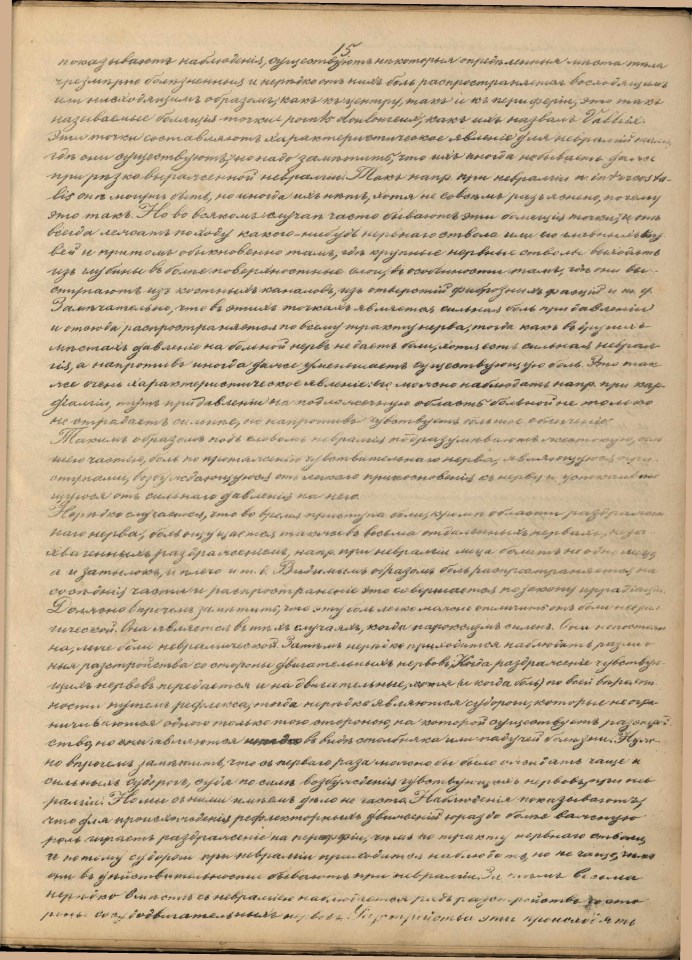 15
показываютъ наблюденія, существуютъ нѣкоторыя опредѣленныя мѣста тѣла
чрезмѣрно болѣзненныя и нерѣдко отъ нихъ боль распространяется восходящимъ
или нисходящимъ образомъ, какъ къ центру, такъ и къ периферіи, это такъ
называемые болящія точки points douloureux, какъ ихъ назвалъ Valleix.
Эти точки составляютъ характеристическое явленіе для невралгій
гдѣ они существуютъ, но надо замѣтить, что ихъ иногда не бываетъ даже
при рѣзко выраженной невралгіи. Такъ напр. при невралгіи n. intercosta-
lis они могутъ быть, но иногда ихъ нѣтъ, хотя не совсѣмъ разъяснено, почему
это такъ. Но во всякомъ случаѣ часто бываютъ эти болящія точки, и онѣ
всегда лежатъ по ходу какого-нибудь нервнаго ствола или его главныхъ вѣт-
вей и притомъ обыкновенно тамъ, гдѣ крупные нервные стволы выходятъ
изъ глубины въ болѣе поверхностные слои, въ особенности тамъ, гдѣ они вы-
ступаютъ изъ костныхъ каналовъ, изъ отверстій фиброзныхъ фасцій и т. д.
Замѣчательно, что въ этихъ точкахъ является сильная боль при давленіи
и отсюда распространяется по всему тракту нерва, тогда какъ въ другихъ
мѣстахъ давленіе на больной нервъ не даетъ боли, хотя есть сильная неврал-
гія, а напротивъ иногда даже уменьшаетъ существующую боль. Это так-
же очень характеристическое явленіе можно наблюдать напр. при кар-
діалгіи, тутъ при давленіи на подложечную область больной не только
не страдаетъ сильнѣе, но напротивъ чувствуетъ большое облегченіе.
Такимъ образомъ подъ словомъ невралгія подразумѣваютъ жестокую, боль-
шею частію, боль по протяженію чувствительнаго нерва, являющуюся при-
ступами, возбуждающуюся отъ легкаго прикосновенія къ нерву и успокаиваю-
щуюся отъ сильнаго давленія на него.
Нерѣдко случается, что во время приступа болѣе въ области раздражен-
наго нерва, боль ощущается также въ весьма отдаленныхъ нервахъ, неза-
хваченныхъ раздраженіемъ, напр. при невралгіи лица болитъ не одно лицо,
а и затылокъ, и плечо и т. д. Видимымъ образомъ боль распространяется на
сосѣднія части и распространеніе это совершается по закону иррадіаціи.
Должно впрочемъ замѣтить, что эту боль легко можно отличить отъ боли неврал-
гической. Она является въ тѣхъ случаяхъ, когда пароксизмъ силенъ. Она непостоян-
на, легче боли невралгической. Затѣмъ нерѣдко приходится наблюдать различ-
ныя разстройства со стороны двигательныхъ нервовъ. Когда раздраженіе чувствую-
щихъ нервовъ передается и на двигательные, хотя (и когда боль) по всей вѣроят-
ности путемъ рефлекса, тогда нерѣдко являются судороги, которые не огра-
ничиваются одною только тою стороною, на которой существуетъ разстрой-
ство, но они являются въ видѣ столбняка или падучей болѣзни. Нуж-
но впрочемъ замѣтить, что съ перваго раза можно бы было ожидать чаще и
сильныхъ судорогъ, судя по силѣ возбужденія чувствующихъ нервовъ, при нев-
ралгіи. Но мы съ ними имѣемъ дѣло не часто. Наблюденія показываютъ,
что для происхожденія рефлекторныхъ движеній гораздо болѣе важную
роль играетъ раздраженіе на периферіи, чѣмъ по тракту нервнаго ствола,
и потому судороги при невралгіи приходится наблюдать, но не чаще, чѣмъ
они въ дѣйствительности бываютъ при невралгіи. За тѣмъ весьма
нерѣдко вмѣстѣ съ невралгіею наблюдается рядъ разстройствъ со сто-
роны сосудодвигательныхъ нервовъ. Разстройства эти происходятъ